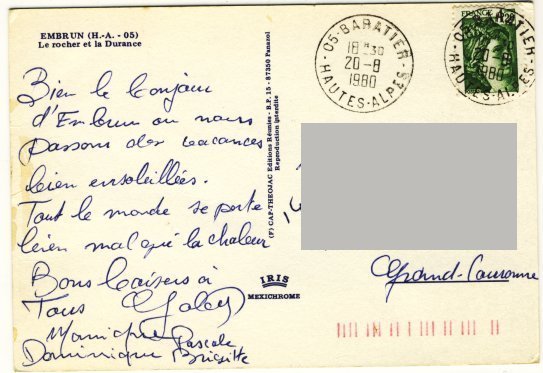 EMBRUN (H.-A. - 05)
Le rocher et la Durance
Bien le bonjour
d'Embrun ou nous
passons des vacances
bien ensoleillées.
Tout le monde se porte
bien malgré la chaleur
Bons baisers à
Tous
Monique Pascale
Dominique Brigitte
(F) CAP-THEOJAC Editions Réunies - B.P. 15 - 87350 Panazol
Reproduction interdite
IRIS
MEXICHROME
05-BARATIER
18H30
20-8
1980
HAUTES-ALPES
FRANCE
BARATIER
20-8
1980
HAUTES-ALPES
Grand-Couronne